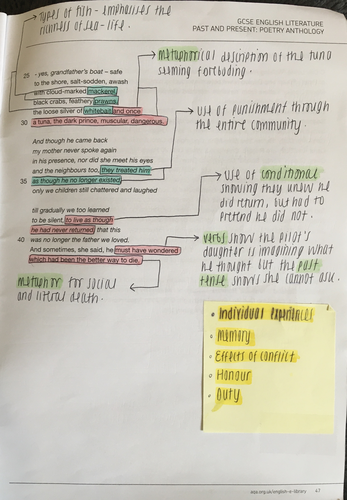 types of fish - emphasises the
richness of sea-life.
GCSE ENGLISH LITERATURE
PAST AND PRESENT: POETRY ANTHOLOGY
metaphorical description of the tuna
seeming forboding.
25 - yes, grandfather's boat – safe
to the shore, salt-sodden, awash
with cloud-marked mackerel,
black crabs, feathery prawns,
the loose silver of whitebait and once
30 a tuna, the dark prince, muscular, dangerous.
use of punishment through
the entire community.
And though he came back
my mother never spoke again
in his presence, nor did she meet his eyes
and the neighbours too, they treated him
35 as though he no longer existed,
only we children still chattered and laughed
use of conditional
showing they knew he
did return, but had to
pretend he did not.
till gradually we too learned
to be silent, to live as though
he had never returned, that this
40 was no longer the father we loved.
And sometimes, she said, he must have wondered
which had been the better way to die.
verbs show the pilot's
daughter is imagining what
he thought but the past
tense shows she cannot ask.
metaphor for social
and literal death.
• Individual Experiences
• Memory
• Effects of conflict
• Honour
• Duty
47